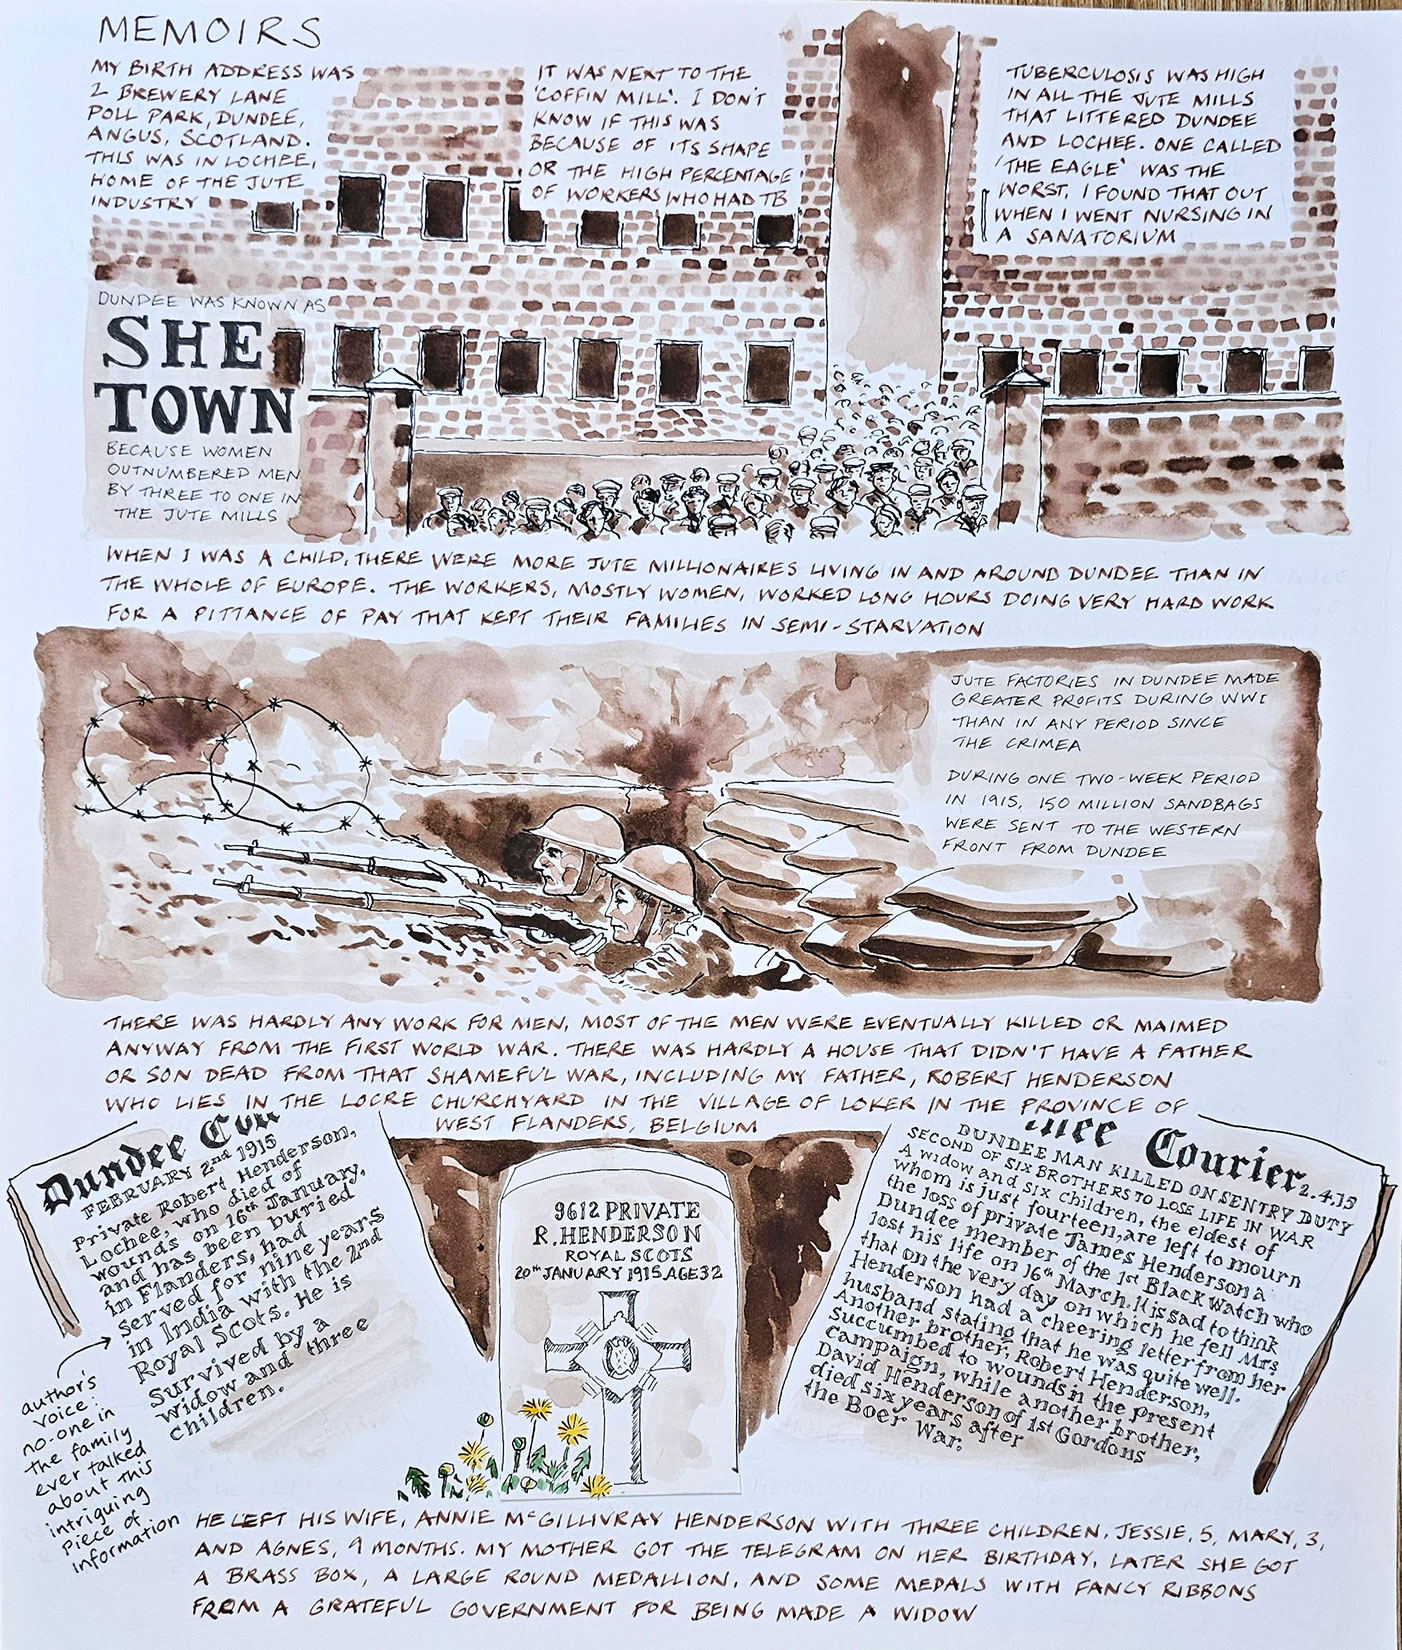 MEMOIRS
MY BIRTH ADDRESS WAS
2 BREWERY LANE
POLL PARK, DUNDEE,
ANGUS, SCOTLAND.
THIS WAS IN LOCHEE,
HOME OF THE JUTE
INDUSTRY
IT WAS NEXT TO THE
'COFFIN MILL'. I DON'T
KNOW IF THIS WAS
BECAUSE OF ITS SHAPE
OR THE HIGH PERCENTAGE
OF WORKERS WHO HAD TB
TUBERCULOSIS WAS HIGH
IN ALL THE JUTE MILLS
THAT LITTERED DUNDEE
AND LOCHEE. ONE CALLED
'THE EAGLE' WAS THE
WORST. I FOUND THAT OUT
WHEN I WENT NURSING IN
A SANATORIUM
DUNDEE WAS KNOWN AS
SHE
TOWN
BECAUSE WOMEN
OUTNUMBERED MEN
BY THREE TO ONE IN
THE JUTE MILLS
WHEN I WAS A CHILD, THERE WERE MORE JUTE MILLIONAIRES LIVING IN AND AROUND DUNDEE THAN IN
THE WHOLE OF EUROPE. THE WORKERS, MOSTLY WOMEN, WORKED LONG HOURS DOING VERY HARD WORK
FOR A PITTANCE OF PAY THAT KEPT THEIR FAMILIES IN SEMI-STARVATION
JUTE FACTORIES IN DUNDEE MADE
GREATER PROFITS DURING WWI
THAN IN ANY PERIOD SINCE
THE CRIMEA
DURING ONE TWO-WEEK PERIOD
IN 1915, 150 MILLION SANDBAGS
WERE SENT TO THE WESTERN
FRONT FROM DUNDEE
THERE WAS HARDLY ANY WORK FOR MEN, MOST OF THE MEN WERE EVENTUALLY KILLED OR MAIMED
ANYWAY FROM THE FIRST WORLD WAR. THERE WAS HARDLY A HOUSE THAT DIDN'T HAVE A FATHER
OR SON DEAD FROM THAT SHAMEFUL WAR, INCLUDING MY FATHER, ROBERT HENDERSON
WHO LIES IN THE LOCRE CHURCHYARD IN THE VILLAGE OF LOKER IN THE PROVINCE OF
WEST FLANDERS, BELGIUM
Dundee Cou
FEBRUARY 2nd 1915
Private Robert Henderson,
Lochee, who died of
wounds on 16th January,
and has been buried
in Flanders, had
served for nine years
in India with the 2nd
Royal Scots. He is
Survived by a
widow and three
children.
author's
voice:
no-one in
the family
ever talked
about this
intriguing
piece of
information
9612 PRIVATE
R. HENDERSON
ROYAL SCOTS
20TH JANUARY 1915, AGE 32
dee Courier 2.4.15
DUNDEE MAN KILLED ON SENTRY DUTY
SECOND OF SIX BROTHERS TO LOSE LIFE IN WAR
A widow and six children, the eldest of
whom is just fourteen, are left to mourn
the loss of private James Henderson a
Dundee member of the 1st Black Watch who
lost his life on 16th March. It is sad to think
that on the very day on which he fell Mrs
Henderson had a cheering letter from her
husband stating that he was quite well.
Another brother, Robert Henderson,
Succumbed to wounds in the present
campaign, while another brother,
David Henderson of 1st Gordons
died six years after
the Boer War.
HE LEFT HIS WIFE, ANNIE McGILLIVRAY HENDERSON WITH THREE CHILDREN, JESSIE, 5, MARY, 3,
AND AGNES, 9 MONTHS. MY MOTHER GOT THE TELEGRAM ON HER BIRTHDAY. LATER SHE GOT
A BRASS BOX, A LARGE ROUND MEDALLION, AND SOME MEDALS WITH FANCY RIBBONS
FROM A GRATEFUL GOVERNMENT FOR BEING MADE A WIDOW